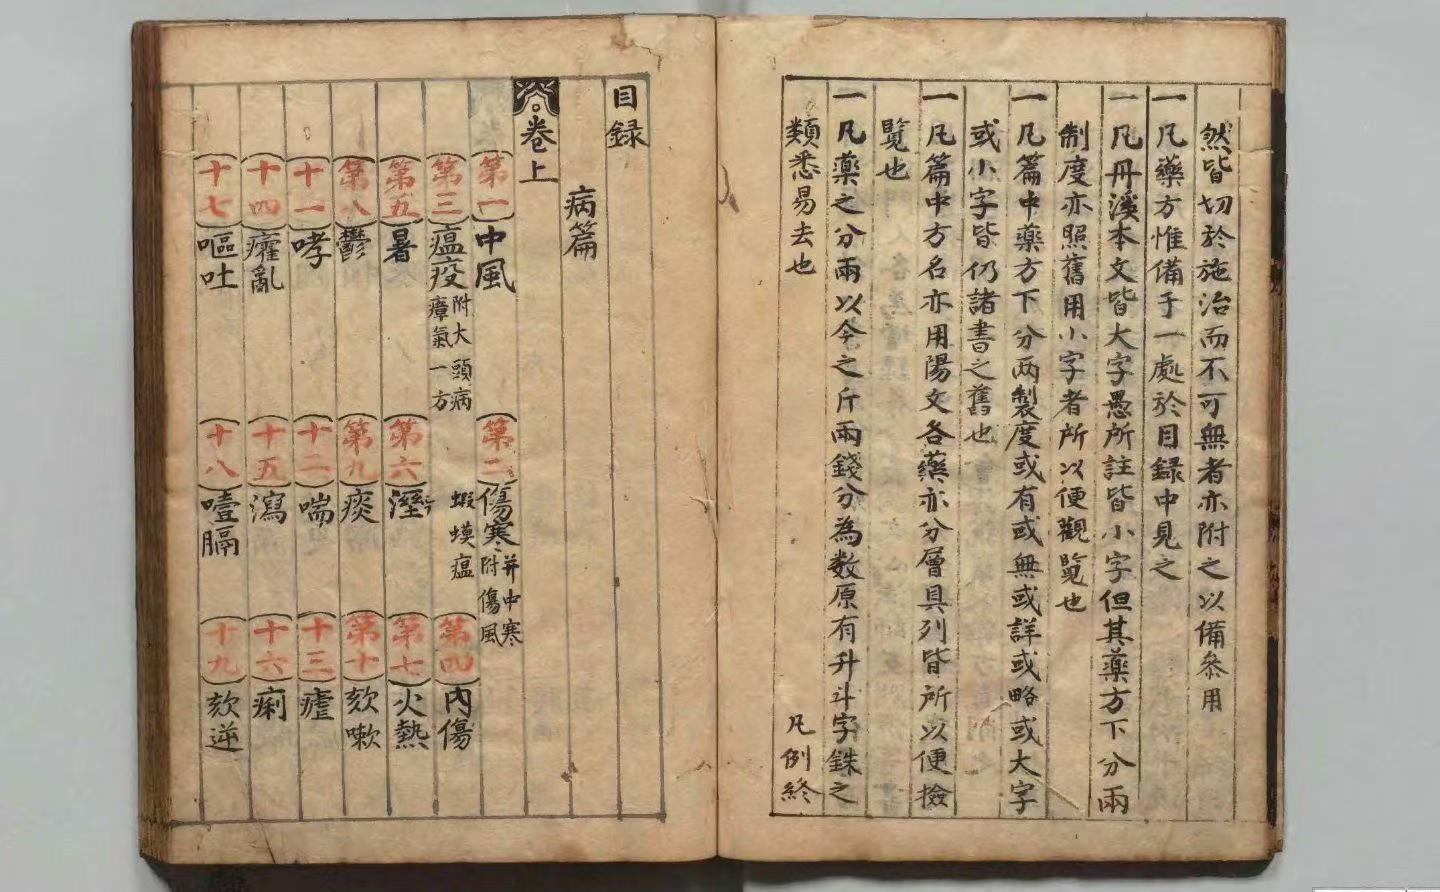 然皆切於施治而不可無者亦附之以備叅用
一凡藥方惟備于一處於目録中見之
一凡丹溪本文皆大字愚所註皆小字但其藥方下分兩
制度亦照舊用小字者所以便觀覽也
一凡篇中藥方下分两製度或有或無或詳或略或大字
或小字皆仍諸書之舊也
一凡篇中方名亦用陽文各藥亦分層具列皆所以便撿
覽也
一凡藥之分兩以今之斤兩錢分為数原有升斗字銖之
類悉易去也 凡例終
目録
病篇
卷上
第一 中風 第二 傷寒 并中寒 附傷風
第三 瘟疫 附大頭病 瘴氣一方 蝦蟆瘟 第四 內傷
第五 暑 第六 溼 第七 火熱
第八 鬱 第九 痰 第十 欬嗽
十一 哮 十二 喘 十三 瘧
十四 癨亂 十五 瀉 十六 痢
十七 嘔吐 十八 噎膈 十九 欬逆